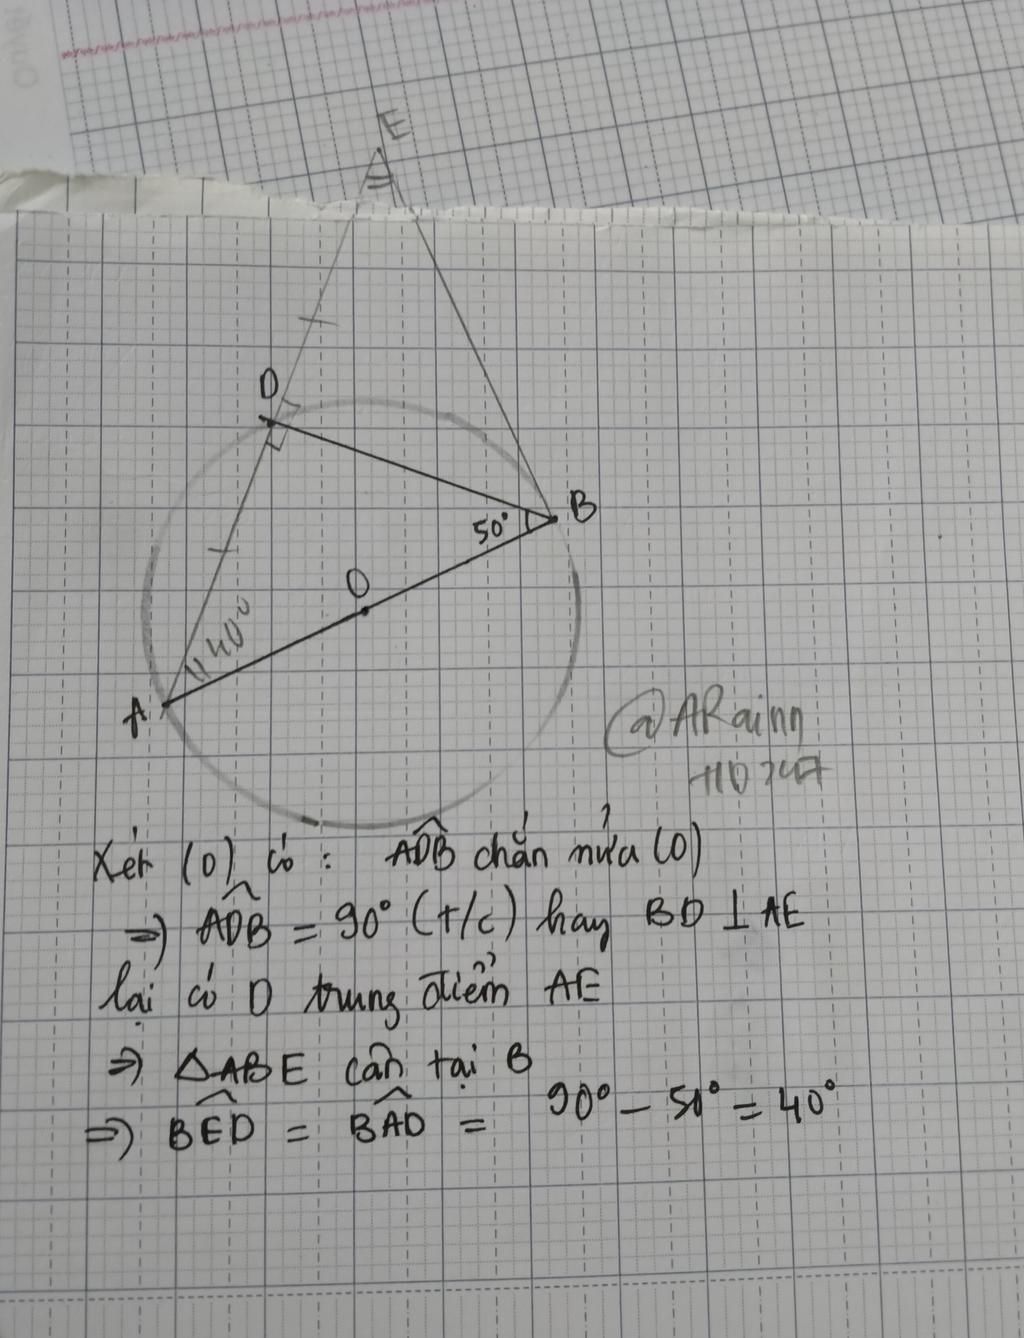 E
D
B
50°
O
40°
A
@ARainn
Xét (O) có : ADB chắn nửa (O)
=> ADB = 90° (t/c) hay BD ⊥ AE
lại có D trung điểm AE
=> △ABE cân tại B
=> BED = BAD = 90° - 50° = 40°